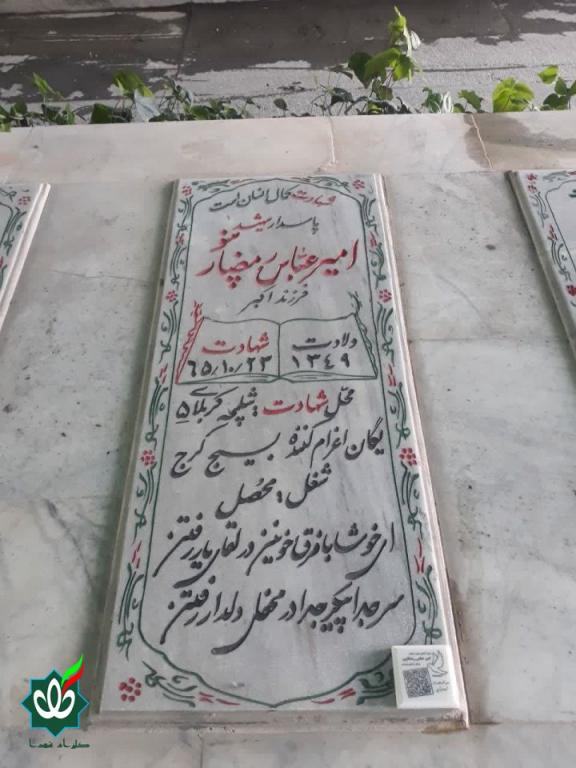 شهادت کمال انسان است
پاسدار شهید
امیر عباس رمضانی منو
فرزند اکبر
ولادت
۱۳۴۹
شهادت
۶۵/۱۰/۲۳
محل شهادت: شلمچه کربلای ۵
یگان اعزام کننده بسیج کرج
شغل: محصل
ای خوشا با فرق خونین در لقای یار رفتن
سر جدا پیکر جدا در محفل دلدار رفتن
گلزار شهدا